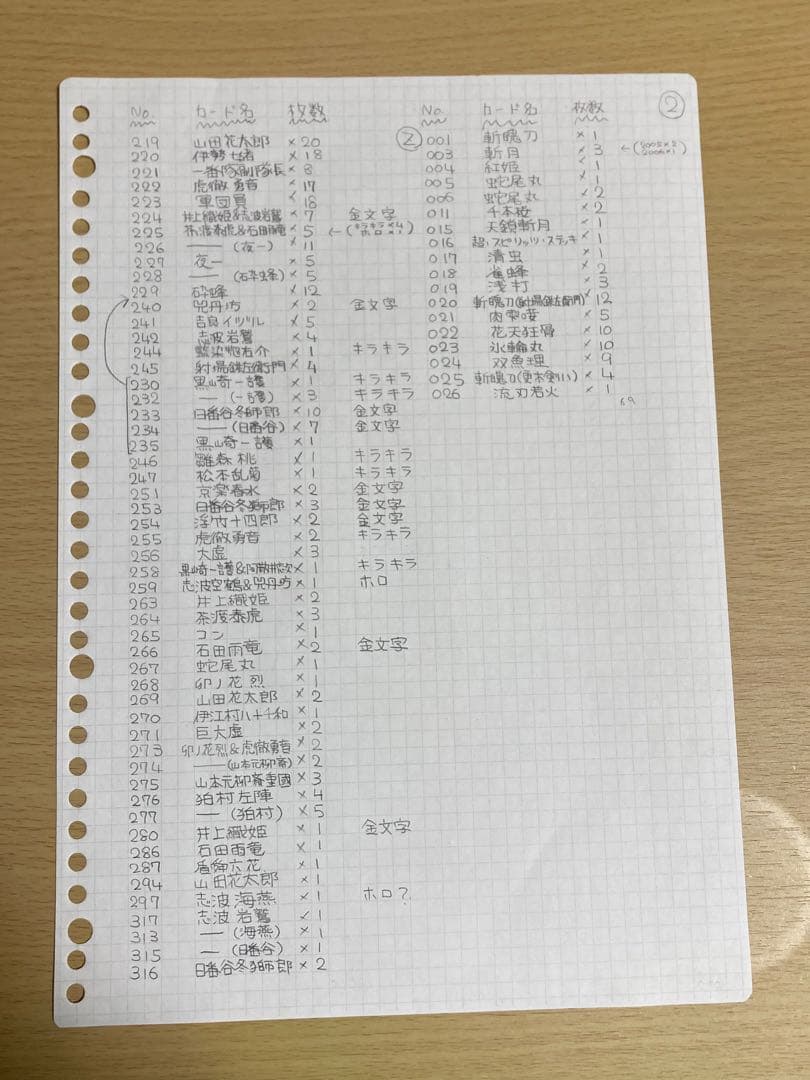 No. カード名 枚数
219 山田花太郎 ×20
220 伊勢七緒 ×18
221 一番隊副隊長 ×8
222 虎徹勇音 ×17
223 軍団員 ×18
224 井上織姫&志波岩鷲 ×7 金文字
225 茶渡泰虎&石田雨竜 ×5 ←(キラキラ×4 ホロ×1)
226 ―― (夜一) ×11
227 夜一 ×5
228 ―― (砕蜂) ×5
229 砕蜂 ×12
240 兕丹坊 ×2 金文字
241 吉良イヅル ×5
242 志波岩鷲 ×4
244 藍染惣右介 ×1 キラキラ
245 射場鉄左衛門 ×4
230 黒崎一護 ×1 キラキラ
232 ― (一護) ×3 キラキラ
233 日番谷冬獅郎 ×10 金文字
234 ―― (日番谷) ×7 金文字
235 黒崎一護 ×1
246 雛森桃 ×1 キラキラ
247 松本乱菊 ×1 キラキラ
251 京楽春水 ×2 金文字
253 日番谷冬獅郎 ×3 金文字
254 浮竹十四郎 ×2 金文字
255 虎徹勇音 ×2 キラキラ
256 大虚 ×3
258 黒崎一護&阿散井恋次 ×1 キラキラ
259 志波空鶴&兕丹坊 ×1 ホロ
263 井上織姫 ×2
264 茶渡泰虎 ×3
265 コン ×1
266 石田雨竜 ×2 金文字
267 蛇尾丸 ×1
268 卯ノ花烈 ×1
269 山田花太郎 ×2
270 伊江村八十千和 ×1
271 巨大虚 ×2
273 卯ノ花烈&虎徹勇音 ×2
274 ―― (山本元柳斎) ×2
275 山本元柳斎重國 ×3
276 狛村左陣 ×4
277 ― (狛村) ×5
280 井上織姫 ×1 金文字
286 石田雨竜 ×1
287 盾舜六花 ×1
294 山田花太郎 ×1
297 志波海燕 ×1 ホロ?
317 志波岩鷲 ×1
313 ― (海燕) ×1
315 ― (日番谷) ×1
316 日番谷冬獅郎 ×2
No. カード名 枚数 ②
② 001 斬魄刀 ×1
003 斬月 ×3 ←(2005×2 2006×1)
004 紅姫 ×1
005 蛇尾丸 ×1
006 蛇尾丸 ×2
011 千本桜 ×2
015 天鎖斬月 ×1
016 超・スピリッツ・ステッキ ×1
017 清虫 ×1
018 雀蜂 ×2
019 浅打 ×3
020 斬魄刀(射場鉄左衛門) ×12
021 肉雫唼 ×5
022 花天狂骨 ×10
023 氷輪丸 ×10
024 双魚理 ×9
025 斬魄刀(更木剣八) ×4
026 流刃若火 ×1
69